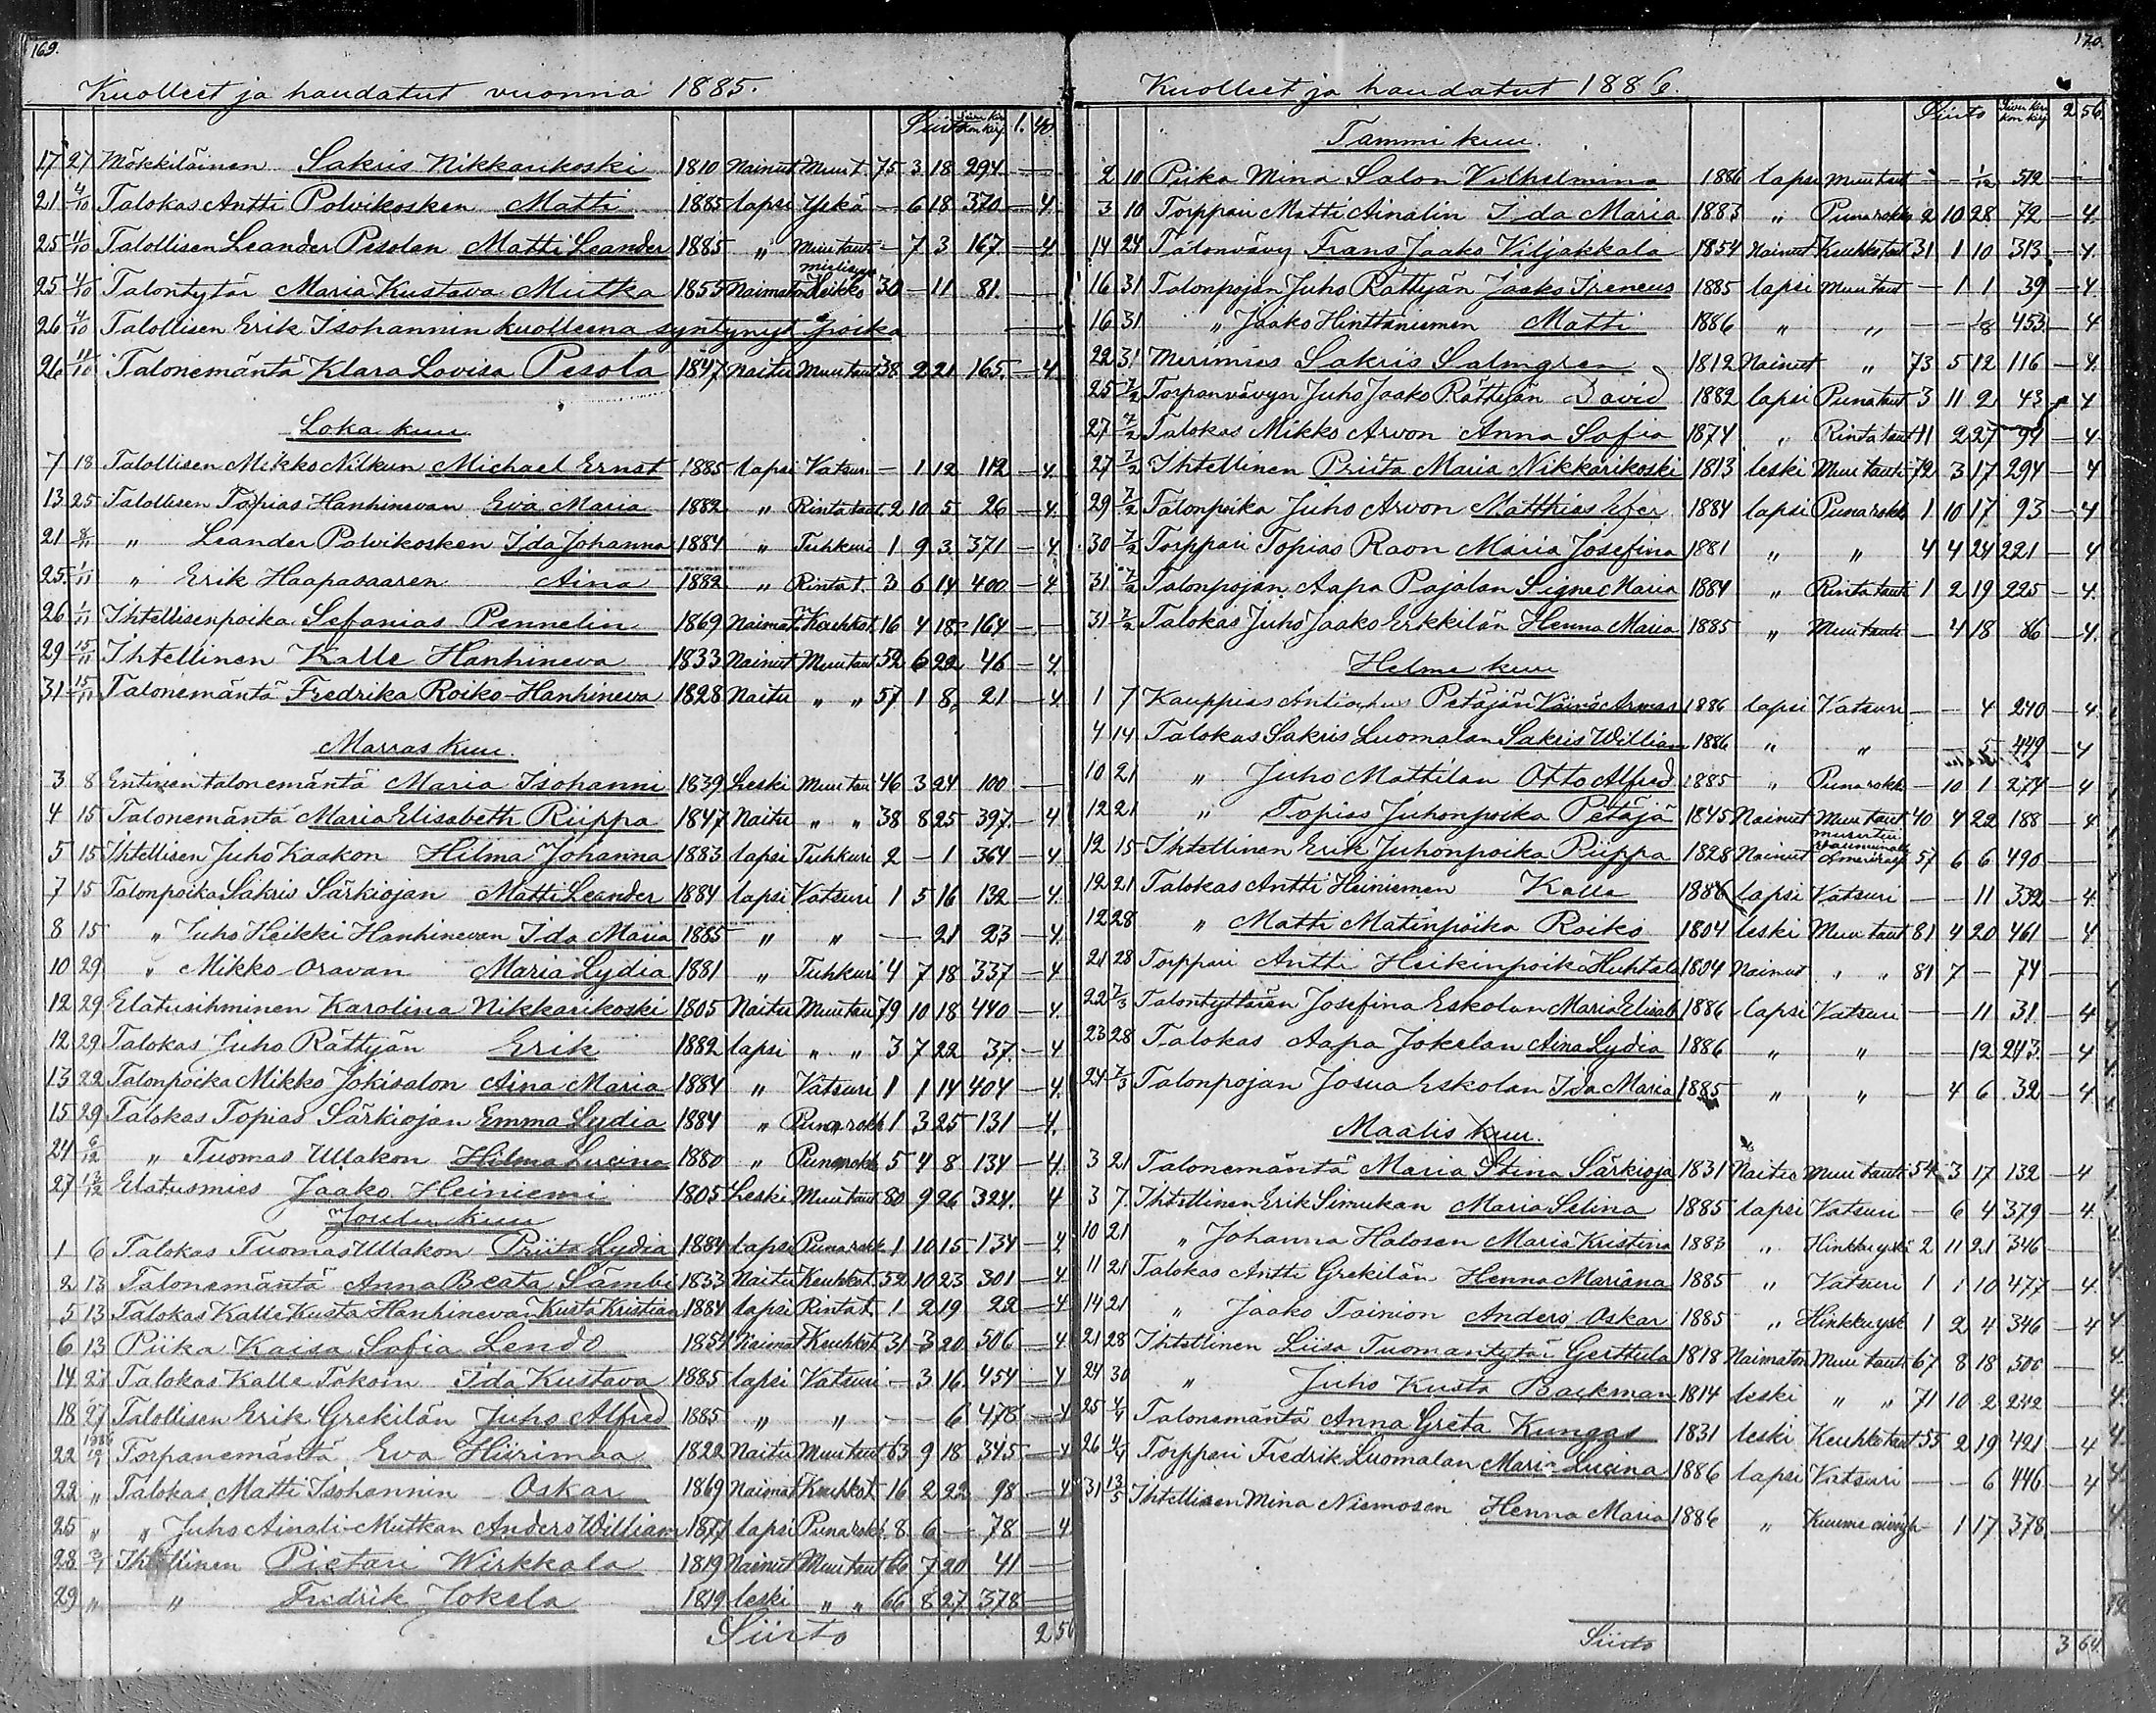 169.
Kuolleet ja haudatut vuonna 1885.
Siirto 1. 40.
17 27 Mökkiläinen Sakris Nikkarikoski 1810 Nainut Muu t. 75 3 18 294 —
21 4/10 Talokas Antti Polvikosken Matti 1885 lapsi Yskä — 6 18 370 — 4.
25 4/10 Talollisen Leander Pesolan Matti Leander 1885 " Muu taut — 7 3 167. — 4
25 4/10 Talontytär Maria Kustava Mutka 1855 Naimaton heikko 30 — 11 81. —
26 4/10 Talollisen Erik Isohannin kuolleena syntynyt poika —
26 11/10 Talonemäntä Klara Lovisa Pesola 1847 Naitu Muu taut 38 2 21 165. — 4
Loka kuu
7 18 Talollisen Mikko Nilkun Michael Ernst 1885 lapsi Vatsuri — 1 12 112 — 4.
13 25 Talollisen Topias Hanhinevan Eva Maria 1882 " Rinta taut. 2 10 5 26 — 4.
21 8/11 " Leander Polvikosken Ida Johanna 1884 " Tuhkuri 1 9 3 371 — 4.
25. 1/11 " Erik Haapasaaren Aina 1882 " Rinta t. 3 6 14 400 — 4.
26 1/11 Ihtellisenpoika Sefanias Pennelin 1869 Naimat. Keuhkot. 16 4 18 164 —
29 15/11 Ihtellinen Kalle Hanhineva 1833 Nainut Muu taut 52 6 22 46 — 4.
31 15/11 Talonemäntä Fredrika Roiko-Hanhineva 1828 Naitu " " 57 1 8 21 — 4
Marras kuu.
3 8 Entinen talonemäntä Maria Isohanni 1839 Leski Muu tau 46 3 24 100 —
4 15 Talonemäntä Maria Elisabeth Riippa 1847 Naitu " " 38 8 25 397. — 4
5 15 Ihtellisen Juho Kaakon Hilma Johanna 1883 lapsi Tuhkuri 2 — 1 364 — 4.
7 15 Talonpoika Sakris Särkiojan Matti Leander 1884 lapsi Vatsuri 1 5 16 132 — 4.
8 15 " Juho Heikki Hanhinevan Ida Maria 1885 " " — — 21 23 — 4.
10 29 " Mikko Oravan Maria Lydia 1881 " Tuhkuri 4 7 18 337 — 4
12 29 Elatusihminen Karolina Nikkarikoski 1805 Naitu Muu tau 79 10 18 440 — 4.
12 29 Talokas Juho Rättyän Erik 1882 lapsi " " 3 7 22 37. — 4
13 22 Talonpoika Mikko Jokisalon Aina Maria 1884 " Vatsuri 1 1 14 404 — 4.
15 29 Talokas Topias Särkiojan Emma Lydia 1884 " Puna rokk 1 3 25 131 — 4.
24 6/12 " Tuomas Ullakon Hilma Lucina 1880 " Puna rokk 5 4 8 134 — 4.
27 13/12 Elatusmies Jaako Heiniemi 1805 Leski Muu taut 80 9 26 324. 4
Joulu kuu
1 6 Talokas Tuomas Ullakon Priita Lydia 1884 lapsi Puna rokk 1 10 15 134 — 4
2 13 Talonemäntä Anna Beata Sämbi 1833 Naitu Keuhkot. 52 10 23 301 — 4.
5 13 Talokas Kalle Kusta Hanhinevan Kusta Kristian 1884 lapsi Rinta t. 1 2 19 22 — 4
6 13 Piika Kaisa Sofia Lendo 1854 Naimat Keuhkot 31 3 20 506 — 4.
14 27 Talokas Kalle Tokoin Ida Kustava 1885 lapsi Vatsuri — 3 16 454 — 4
18 27 Talollisen Erik Grekilän Juho Alfred 1885 " " — — 6 478 — 4
1886
22 Torpanemäntä Eva Hiirimaa 1822 Naitu Muu taut 63 9 18 345 — 4
22 " Talokas Matti Isohannin Oskar 1869 Naimat Keuhkot. 16 2 22 98 — 4
25 " " Juho Ainali-Mutkan Anders William 1877 lapsi Puna rokk. 8 6 — 78 — 4
28 Ihtellinen Pietari Wirkkala 1819 Nainut Muu taut 66 7 20 41 —
29 " " Fredrik Jokela 1819 leski " " 66 8 27 378 —
Siirto 2 56
170.
Kuolleet ja haudatut 1886.
Siirto 2 56.
Tammi kuu.
2 10 Piika Mina Salon Vilhelmina 1886 lapsi Muu taut — — 1/12 512 —
3 10 Torppari Matti Ainalin Ida Maria 1883 " Puna rokko 2 10 28 72 — 4.
14 24 Talonvävy Frans Jaako Viljakkala 1854 Nainut Keuhko taut 31 1 10 313 — 4.
16 31 Talonpojan Juho Rättyän Jaako Ireneus 1885 lapsi Muu taut — 1 1 39 — 4.
16 31 " Jaako Hinttaniemen Matti 1886 " " — — 1/8 453 — 4
22 31 Merimies Sakris Salmgren 1812 Nainut " 73 5 12 116 — 4.
25 7/2 Torpanvävyn Juho Jaako Rättyän David 1882 lapsi Puna taut 3 11 2 43 4
27 7/2 Talokas Mikko Arvon Anna Sofia 1874 " Rinta taut 11 2 27 94 — 4
27 7/2 Ihtellinen Priita Maria Nikkarikoski 1813 leski Muu tauti 72 3 17 294 — 4
29 7/2 Talonpoika Juho Arvon Matthias Efer 1884 lapsi Puna rokk 1 10 17 93 — 4
30 7/2 Torppari Topias Raon Maria Josefina 1881 " " 4 4 24 221 — 4
31. 7/2 Talonpojan Aapa Pajalan Signe Maria 1884 " Rinta tauti 1 2 19 225 — 4.
31 7/2 Talokas Juho Jaako Erkkilän Henna Maria 1885 " Muu tauti — 4 18 86 — 4.
Helme kuu
1 7 Kauppias Petäjän Väinö Armas 1886 lapsi Vatsuri — — 4 240 — 4.
4 14 Talokas Sakris Luomalan Sakris William 1886 " " — 5 449 — 4
10 21 " Juho Mattilan Otto Alfred 1885 " Puna rokk — 10 1 274 — 4
12 21 " Topias Juhonpoika Petäjä 1845 Nainut Muu taut 40 4 22 188 — 4
12 15 Ihtellinen Erik Juhonpoika Riippa 1828 Nainut 57 6 6 490 —
12 21 Talokas Antti Heiniemen Kalle 1886 lapsi Vatsuri — — 11 332 — 4.
12 28 " Matti Matinpoika Roiko 1804 leski Muu taut 81 4 20 461 — 4
21 28 Torppari Antti Heikinpoika Huhtala 1804 Nainut " " 81 7 — 74 —
22 7/3 Talontyttären Josefina Eskolan Maria Elisab 1886 lapsi Vatsuri — — 11 31. — 4
23 28 Talokas Aapa Jokelan Aina Lydia 1886 " " — — 12 243. — 4
24 7/3 Talonpojan Josua Eskolan Ida Maria 1885 " " — 4 6 32 — 4
Maalis kuu.
3 21 Talonemäntä Maria Stina Särkioja 1831 Naitu Muu tauti 54 3 17 132 — 4
3 7. Ihtellinen Erik Simukan Maria Selina 1885 lapsi Vatsuri — 6 4 379 — 4.
10 21 " Johanna Halosen Maria Kristina 1883 " Hinkku yskä 2 11 21 346 —
11 21 Talokas Antti Grekilän Henna Mariana 1885 " Vatsuri 1 1 10 477 — 4.
14 21 " Jaako Tainion Anders Oskar 1885 " Hinkku ysk 1 2 4 346 — 4
21 28 Ihtellinen Liisa Tuomantytär Gerttula 1818 Naimaton Muu tauti 67 8 18 506 —
24 30 " Juho Kusta Backman 1814 leski " " 71 10 2 242 —
25 4/4 Talonemäntä Anna Greta Kungas 1831 leski Keuhko taut 55 2 19 421 — 4
26 4/4 Torppari Fredrik Luomalan Maria Lucina 1886 lapsi Vatsuri — — 6 446 — 4
31 13/5 Ihtellisen Mina Niemosen Henna Maria 1886 " — 1 17 378 —
Siirto 3 64.